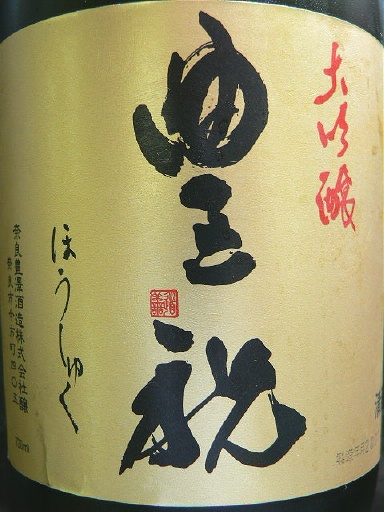 大吟醸
豊祝
ほうしゅく
奈良豊澤酒造株式会社醸
奈良市今市町四〇五
720ml